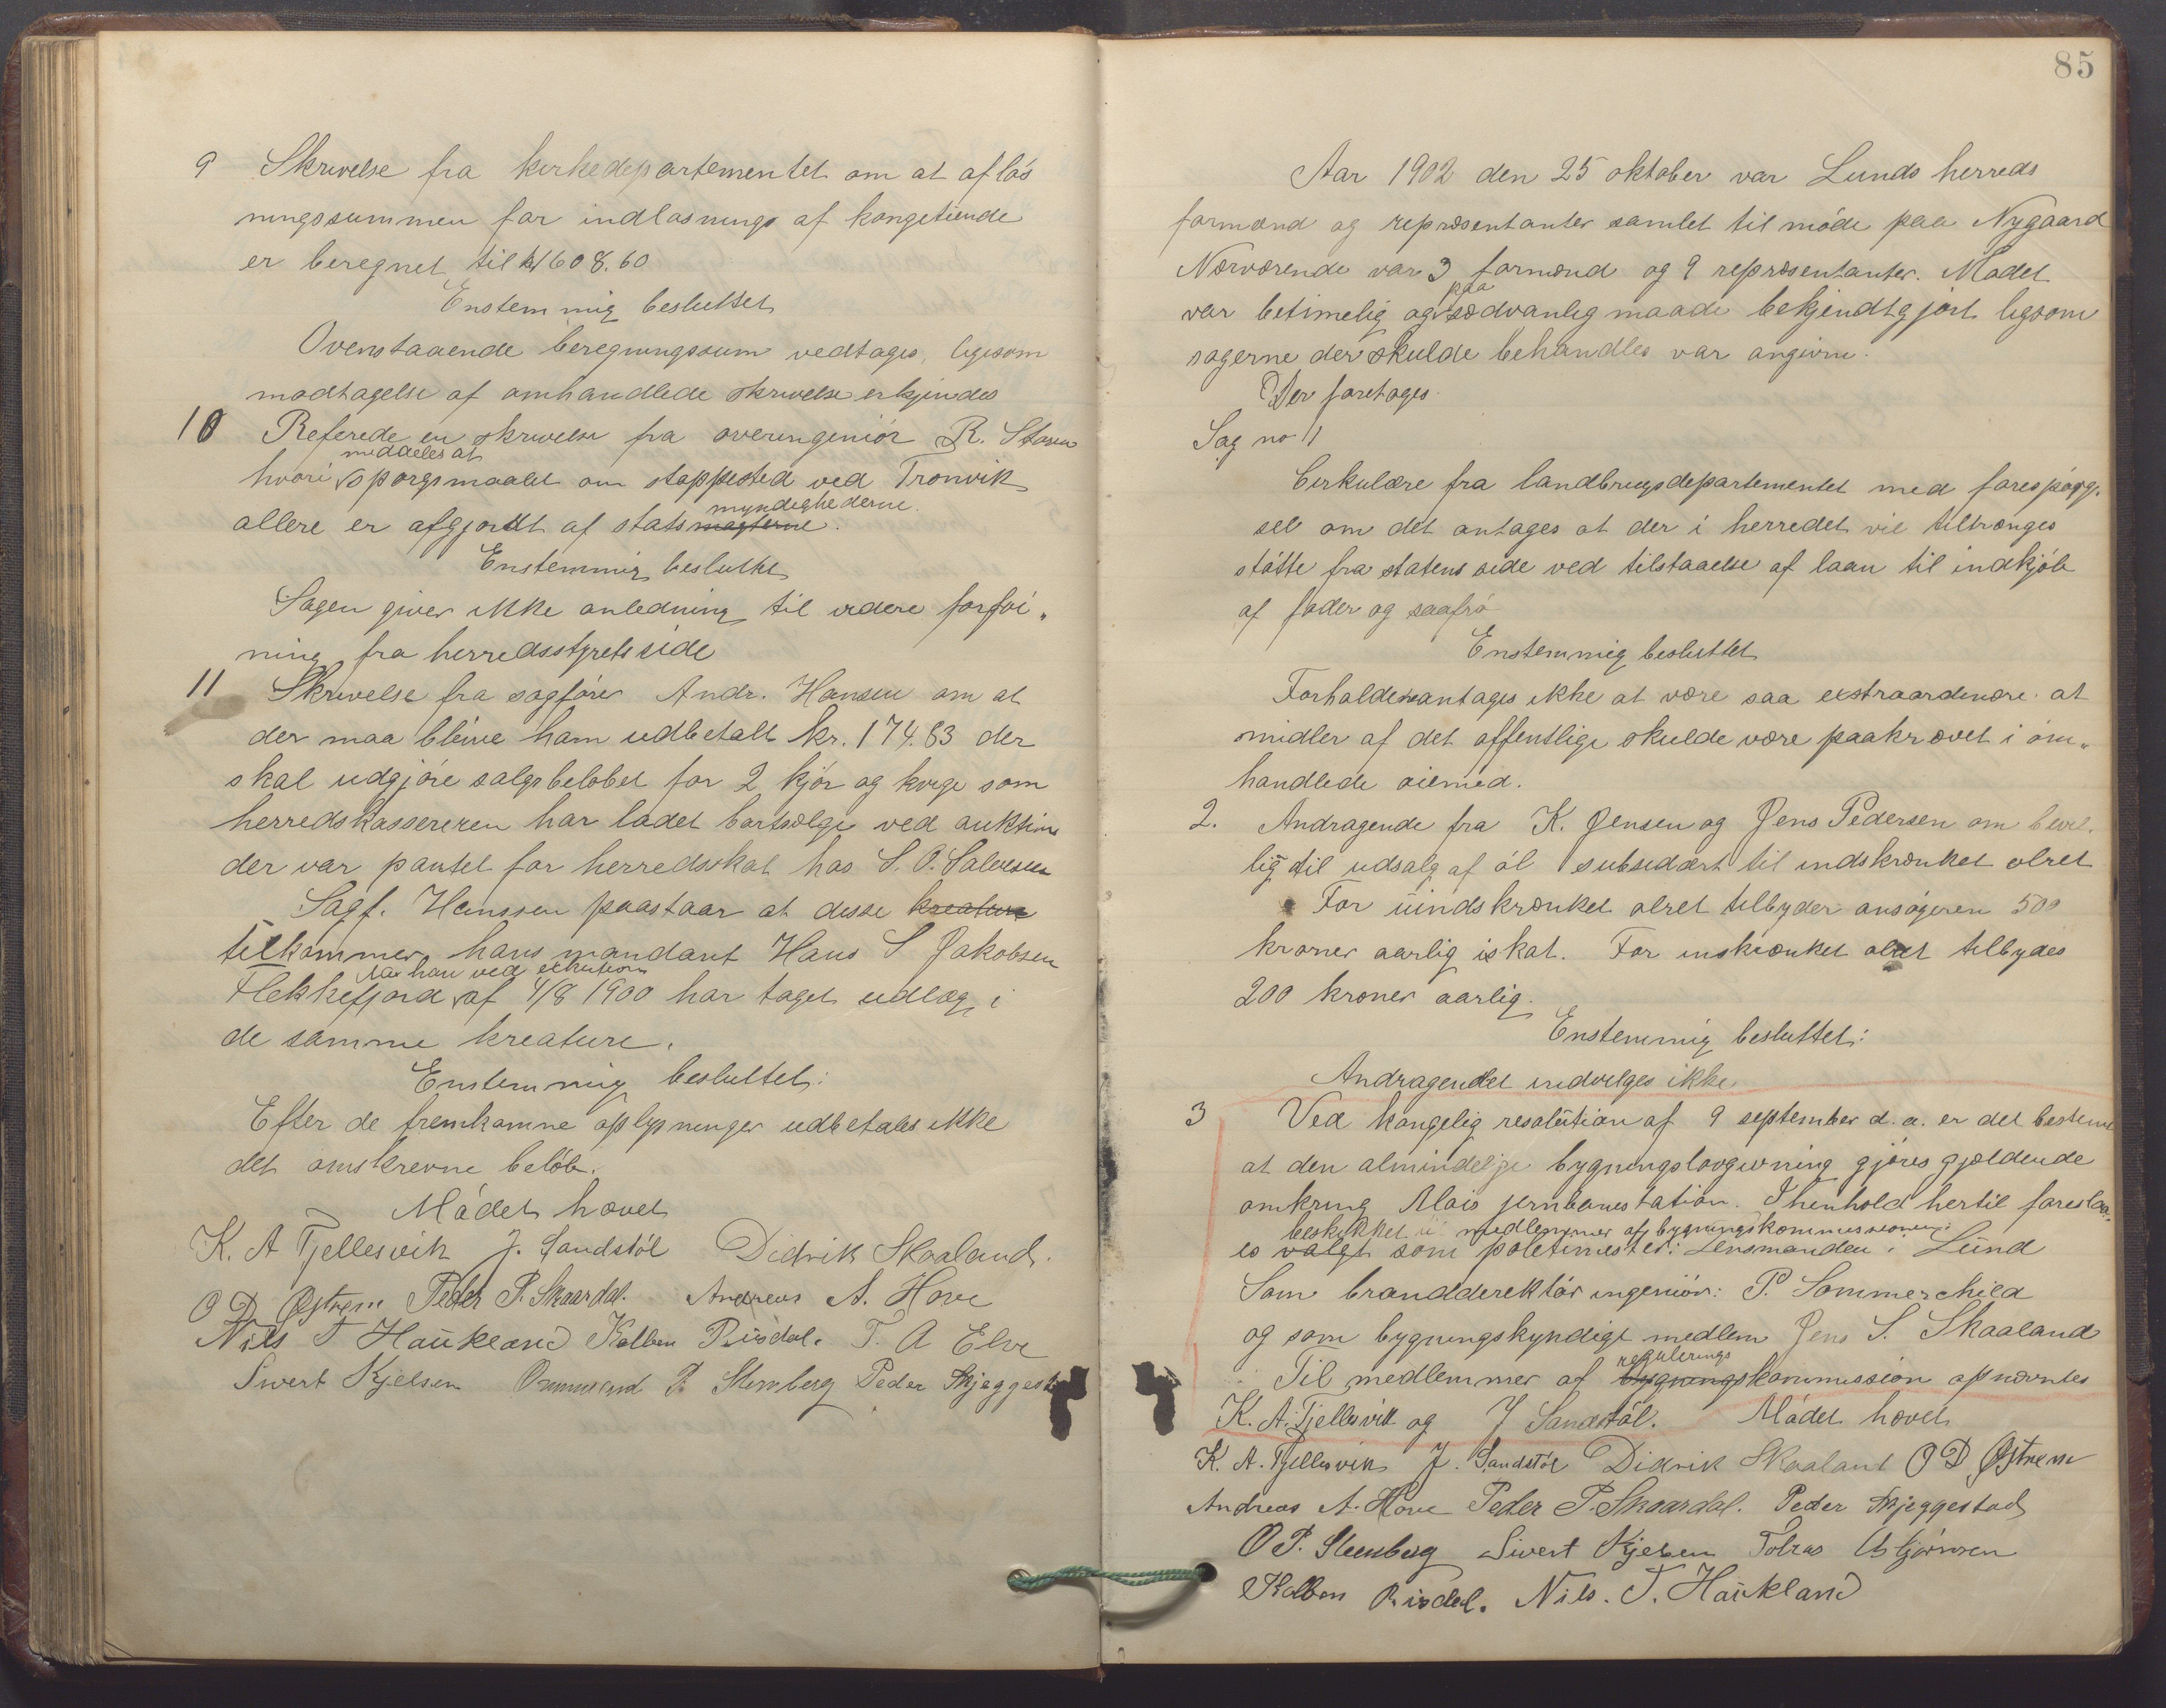 9 Skrivelse fra kirkedepartementet om at afløs
ningssummen for indløsnings af kongetiende
er beregnet til kr 1608.60
Enstemmig besluttet
Ovenstaaende beregningssum vedtages, ligesom
modtagelse af omhandlede skrivelse erkjendes
10 Referede en skrivelse fra overingeniør R. Støren
meddeles at
hvori spørgsmaalet om stoppested ved Tronvik
myndighederne.
allere er afgjordt af statsmagterne.
Enstemmig besluttet
Sagen giver ikke anledning til videre forføi„
ning fra herredsstyrets side
11 Skrivelse fra sagfører Andr. Hansen om at
der maa blive ham udbetalt kr. 174.83 der
skal udgjøre salgsbeløbet for 2 kjør og kvige som
herredskassereren har ladet bortsælge ved auktion
der var pantet for herredsskat hos S. O. Salvesen
Sagf. Hanssen paastaar at disse kreature
tilkommer hans mandant Hans S Jakobsen
da han ved exkution
Flekkefjord af 4/8 1900 har taget udlæg i
de samme kreature.
Enstemmig besluttet:
Efter de fremkomne oplysninger udbetales ikke
det omskrevne beløb.
Mødet hævet
K. A Tjellesvik J. Sandstøl Didrik Skaaland.
O D Østrem Peder P. Skaardal. Andreas A. Hove
Nils T Haukland Kolben Risdal. T. A Elve
Sivert Kjelsen Ommund P. Stenberg Peder Skjeggestad
85
Aar 1902 den 25 oktober var Lunds herreds
formænd og repræsentanter samlet til møde paa Nygaard
Nærværende var 3 formænd og 9 repræsentanter. Mødet
paa
var betimelig og sædvanlig maade bekjendtgjort ligsom
sagerne der skulde behandles var angivne.
Der foretages
Sag no 1
Cirkulære fra landbrugsdepartementet med forespørg„
sel om det antages at der i herredet vil tiltrænges
støtte fra statens side ved tilstaaelse af laan til indkjøb
af foder og saafrø
Enstemmig besluttet
Forholdene antages ikke at være saa exstraordinære at
midler af det offentlige skulde være paakrævet i om„
handlede øiemed.
2. Andragende fra K. Jensen og Jens Pedersen om bevil„
lig til udsalg af øl subsidært til indskrænket ølret
For uindskrænket ølret tilbyder ansøgeren 500
kroner aarlig i skat. For inskrænket ølret tilbydes
200 kroner aarlig.
Enstemmig besluttet:
Andragendet indvilges ikke
3 Ved kongelig resolution af 9 september d. a. er det bestemt
at den almindelige bygningslovgivning gjøres gjældende
omkring Moi jernbanestation. I henhold hertil foreslaa„
beskikket til medlemmer af bygningskommissionen:
es valgt som politimester: Lensmanden i Lund
Som branddirektør ingeniør: P. Sommerchild
og som bygningskyndigt medlem Jens S. Skaaland
regulerings
Til medlemmer af bygningskommission opnævntes
K. A. Tjellesvik og J Sandstøl. Mødet hævet
K. A. Tjellesvik J. Sandstøl Didrik Skaaland O D Østrem
Andreas A. Hove Peder P. Skaardal. Peder Skjeggestad
O P. Steenberg Sivert Kjelsen Tobias Asbjørnsen
Kolben Risdal. Nils. T. Haukland